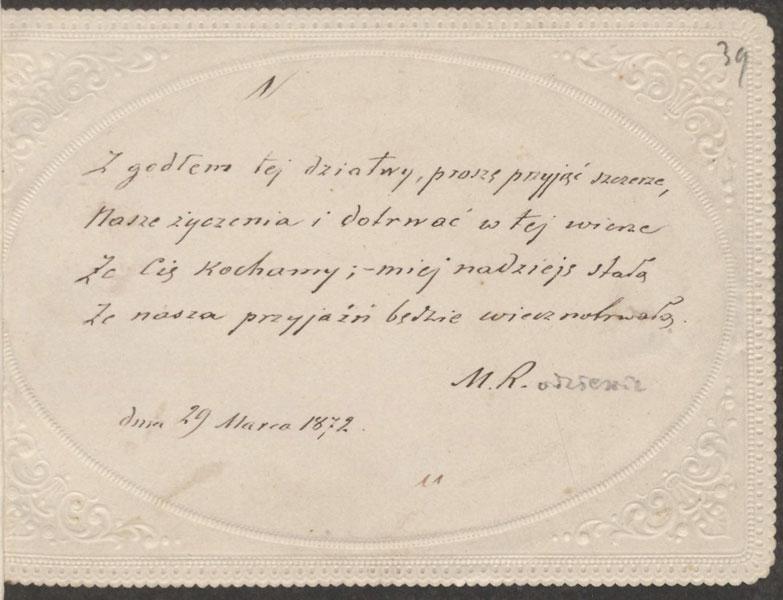 39
N
Z godłem tej dziatwy, proszę przyjąć szczerze,
Nasze życzenia i dotrwać w tej wierze
Że Cię kochamy; – miej nadzieję stałą
Że nasza przyjaźń będzie wiecznotrwałą.
M. R.
dnia 29 Marca 1872.